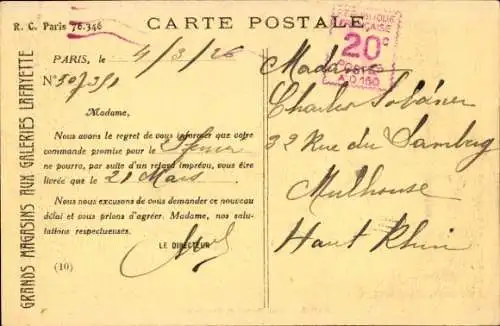 R. C. Paris 76.346
CARTE POSTALE
RÉPUBLIQUE
FRANÇAISE
20c
POSTES
A.0160
GRANDS MAGASINS AUX GALERIES LAFAYETTE
PARIS, le 4/3/26
N°
Madame,
Nous avons le regret de vous informer que votre
commande promise pour le
ne pourra, par suite d'un retard imprévu, vous être
livrée que le 21 Mars
Nous nous excusons de vous demander ce nouveau
délai et vous prions d'agréer, Madame, nos salu-
tations respectueuses.
LE DIRECTEUR
(10)
Madame
Charles
32 Rue du
Mulhouse
Haut Rhin